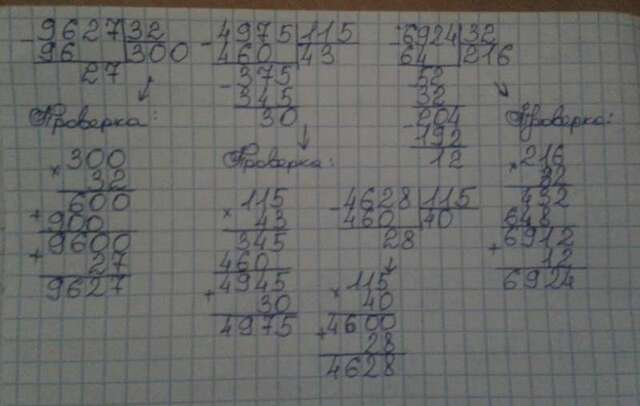 9627 32
- 96 300
27
Проверка:
300
× 32
600
+ 900
9600
+ 27
9627
4975 115
- 460 43
375
- 345
30
Проверка:
115
× 43
345
460
4945
+ 30
4975
4628 115
- 460 40
28
115
× 40
4600
+ 28
4628
6924 32
- 64 216
52
- 32
204
- 192
12
Проверка:
216
× 32
432
648
6912
+ 12
6924